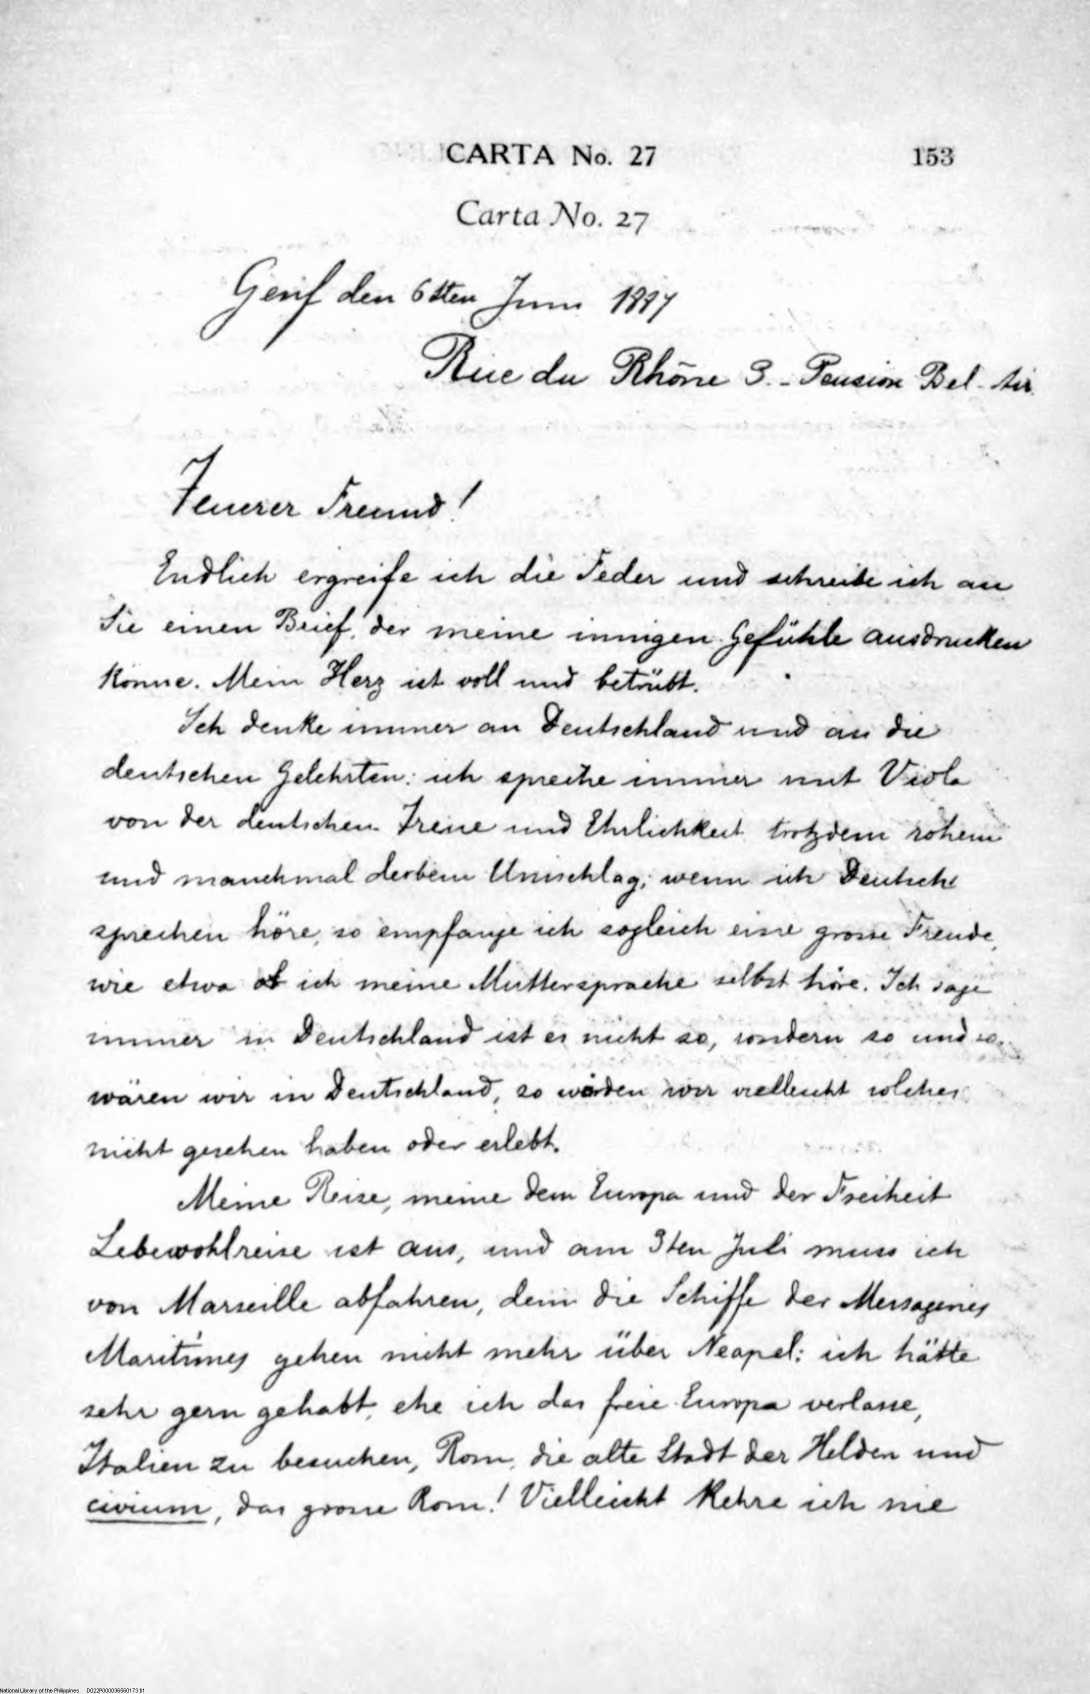 CARTA No. 27 153
Carta No. 27
Genf den 6ten Juni 1887
Rue du Rhône 3. - Pension Bel-Air
Teuerer Freund!
Endlich ergreife ich die Feder und schreibe ich an
Sie einen Brief, der meine innigen Gefühle ausdrucken
könne. Mein Herz ist voll und betrübt.
Ich denke immer an Deutschland und an die
deutschen Gelehrten: ich spreche immer mit Viola
von der deutschen Treue und Ehrlichkeit trotzdem rohem
und manchmal derbem Umschlag; wenn ich Deutsche
sprechen höre, so empfange ich sogleich eine grosse Freude,
wie etwa ob ich meine Muttersprache selbst höre. Ich sage
immer in Deutschland ist es nicht so, sondern so und so.
wären wir in Deutschland, so würden wir vielleicht solches
nicht gesehen haben oder erlebt.
Meine Reise, meine dem Europa und der Freiheit
Lebewohlreise ist aus, und am 3ten Juli muss ich
von Marseille abfahren, denn die Schiffe der Messageries
Maritimes gehen nicht mehr über Neapel: ich hätte
sehr gern gehabt, ehe ich das freie Europa verlasse,
Italien zu besuchen, Rom, die alte Stadt der Helden und
civium, das grosse Rom! Vielleicht kehre ich nie
National Library of the Philippines